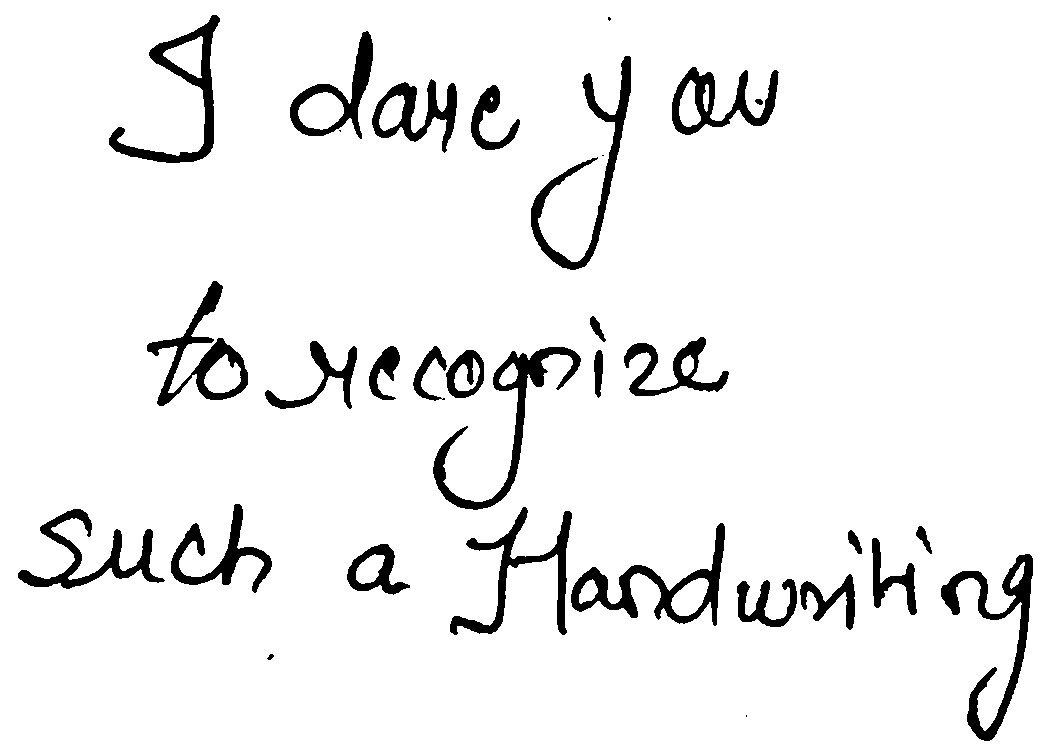 I dare you
to recognize
such a Handwriting